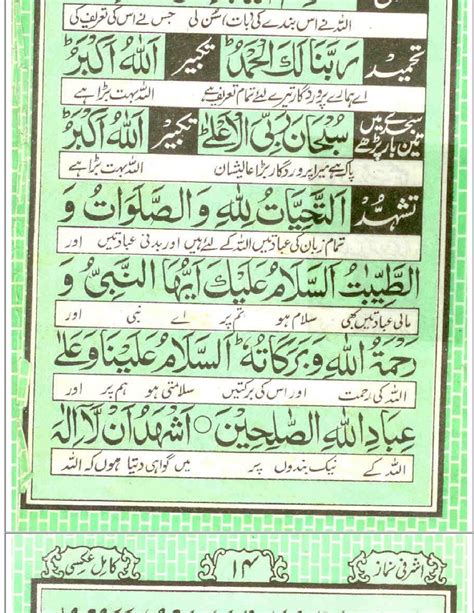 اللہ نے اس بندے کی بات سن لی جس نے اس کی تعریف کی
تحمید رَبَّنَا لَكَ الْحَمْدُ تکبیر اَللهُ اَكْبَرُ
اے ہمارے پروردگار تیرے لئے تمام تعریف ہے اللہ بہت بڑا ہے
سجدے میں تین بار پڑھے سُبْحَانَ رَبِّيَ الْاَعْلٰے تکبیر اَللهُ اَكْبَرُ
پاک ہے میرا پروردگار بڑا عالیشان اللہ بہت بڑا ہے
تشہد اَلتَّحِيَّاتُ لِلّٰهِ وَالصَّلَوَاتُ وَ
تمام زبان کی عبادتیں اللہ کے لئے ہیں اور بدنی عبادتیں اور
الطَّيِّبٰتُ اَلسَّلَامُ عَلَيْكَ اَيُّهَا النَّبِيُّ وَ
مالی عبادتیں بھی سلام ہو تم پر اے نبی اور
رَحْمَةُ اللهِ وَبَرَكَاتُهُ ؕ اَلسَّلَامُ عَلَيْنَا وَعَلٰے
اللہ کی رحمت اور اس کی برکتیں سلامتی ہو ہم پر اور
عِبَادِ اللهِ الصّٰلِحِيْنَ ○ اَشْهَدُ اَنْ لَّا اِلٰهَ
اللہ کے نیک بندوں پر میں گواہی دیتا ہوں کہ اللہ
اشرفی نماز ۱۴ کامل عکسی